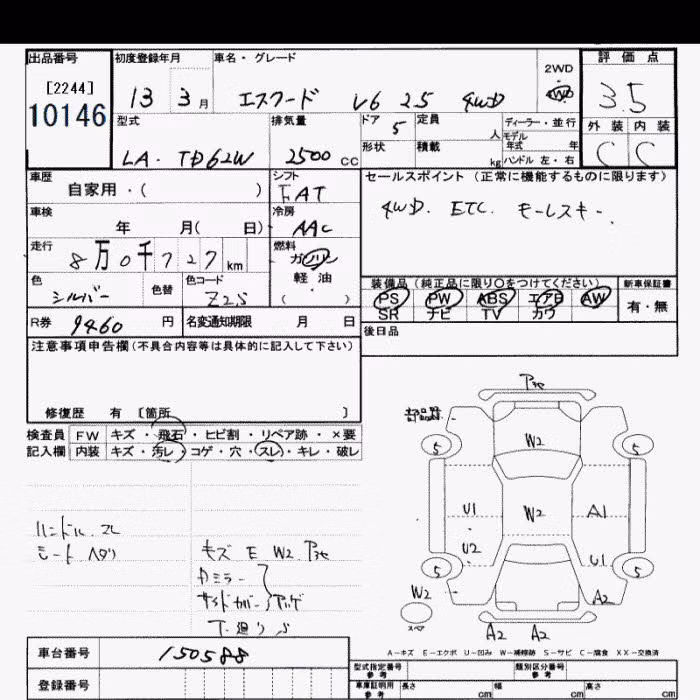 出品番号
[2244]
10146
初度登録年月
13 3 月
車名・グレード
エスクード V6 2.5 4WD
2WD
4WD
評価点
3.5
外装 内装
C C
型式
LA-TD62W
排気量
2500 cc
ドア 5
定員 人
形状
積載 kg
ディーラー・並行
モデル
年式 年
ハンドル 左・右
車歴
自家用・( )
シフト
FAT
セールスポイント(正常に機能するものに限ります)
4WD. ETC. モールスキー.
車検
年 月( 日)
冷房
AAC
走行
8万0千727 km
燃料
ガソリン
軽・油
( )
色
シルバー
色替
色コード
Z2S
装備品(純正品に限り〇をつけてください)
PS PW ABS エアB AW
SR ナビ TV カワ
新車保証書
有・無
R券 9460 円
名変通知期限 月 日
後日品
注意事項申告欄(不具合内容等は具体的に記入して下さい)
修復歴 有 [箇所 ]
検査員
記入欄
FW キズ・飛石・ヒビ割・リペア跡・×要
内装 キズ・汚レ・コゲ・穴・スレ・キレ・破レ
ハンドル スレ
シート ヘタリ
キズ E W2
カミラー
サイドカバー
W2
5 5
U1 W2 A1
U2
U1
5 5
W2 A2
スペア
A2 A2
A-キズ E-エクボ U-凹み W-補修跡 S-サビ C-腐食 XX-交換済
車台番号 150588
登録番号
型式指定番号
参考
類別区分番号
参考
車庫証明用
参考
長さ cm
幅 cm
高さ cm